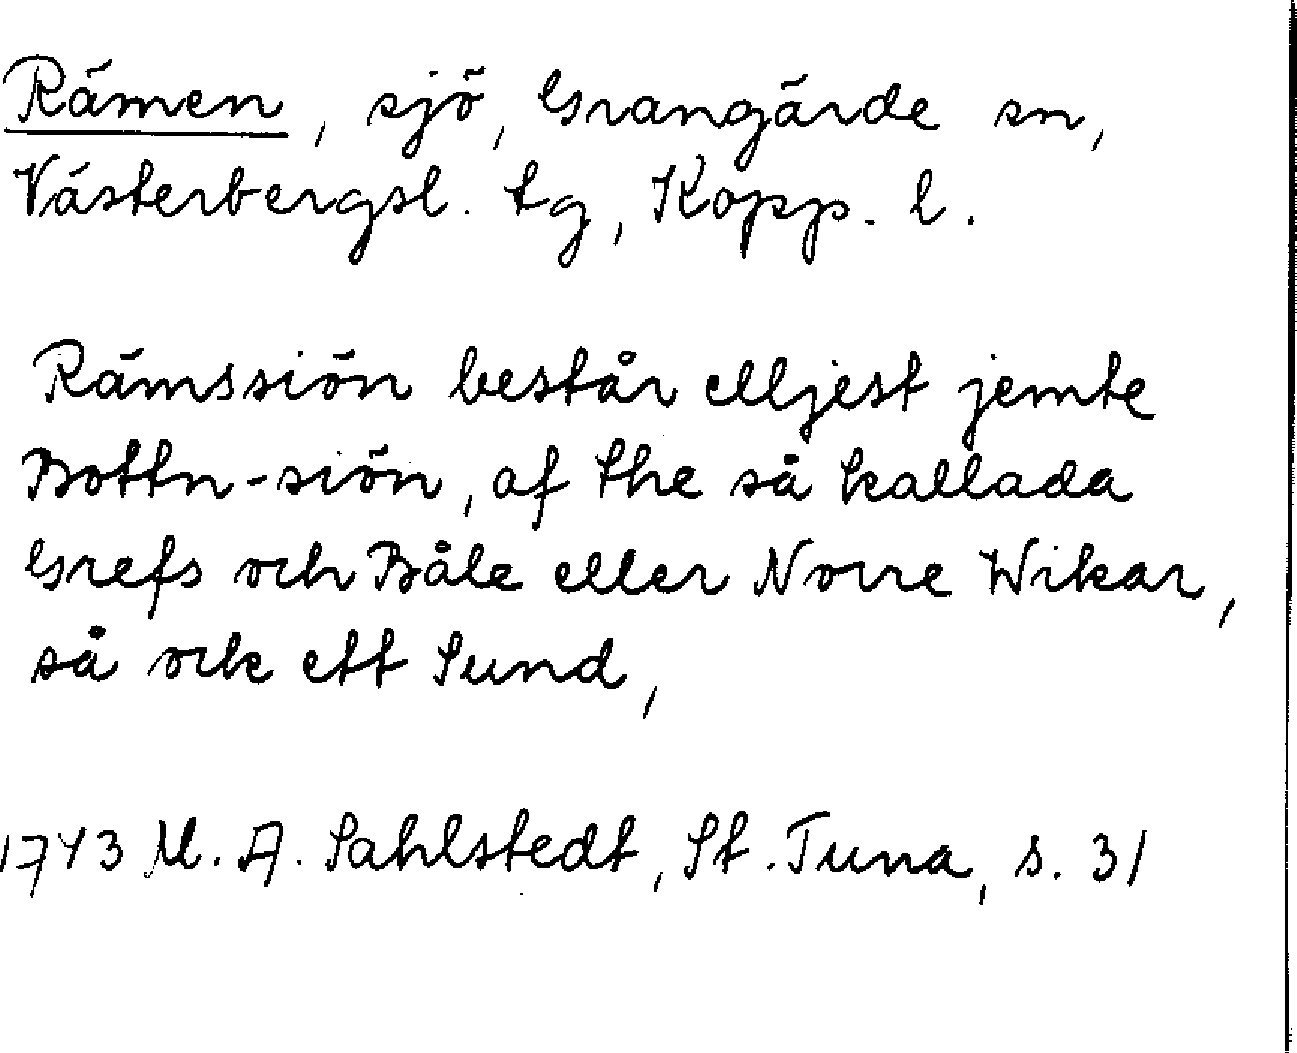 Rämen, sjö, Grangärde sn,
Västerbergsl. tg, Kopp. l.
Rämssiön består elljest jemte
Bottn-siön, af the så kallada
Grefs och Båle eller Norre Wikar,
så ock ett Sund,
1743 M. A. Sahlstedt, St. Tuna, s. 31